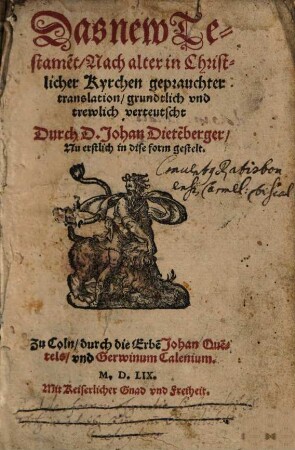 Das new Te-
stamēt/Nach alter in Christ-
licher Kyrchen gepraucht̄er
translation/grundtlich vnd
trewlich verteutscht
Durch D. Johan Dietēberger/
Nu erstlich in dise form gestelt.
Zu Coln/durch die Erbē Johan Quē-
tels/vnd Gerwinum Calenium.
M. D. LIX.
Mit Keiserlicher Gnad vnd Freiheit.